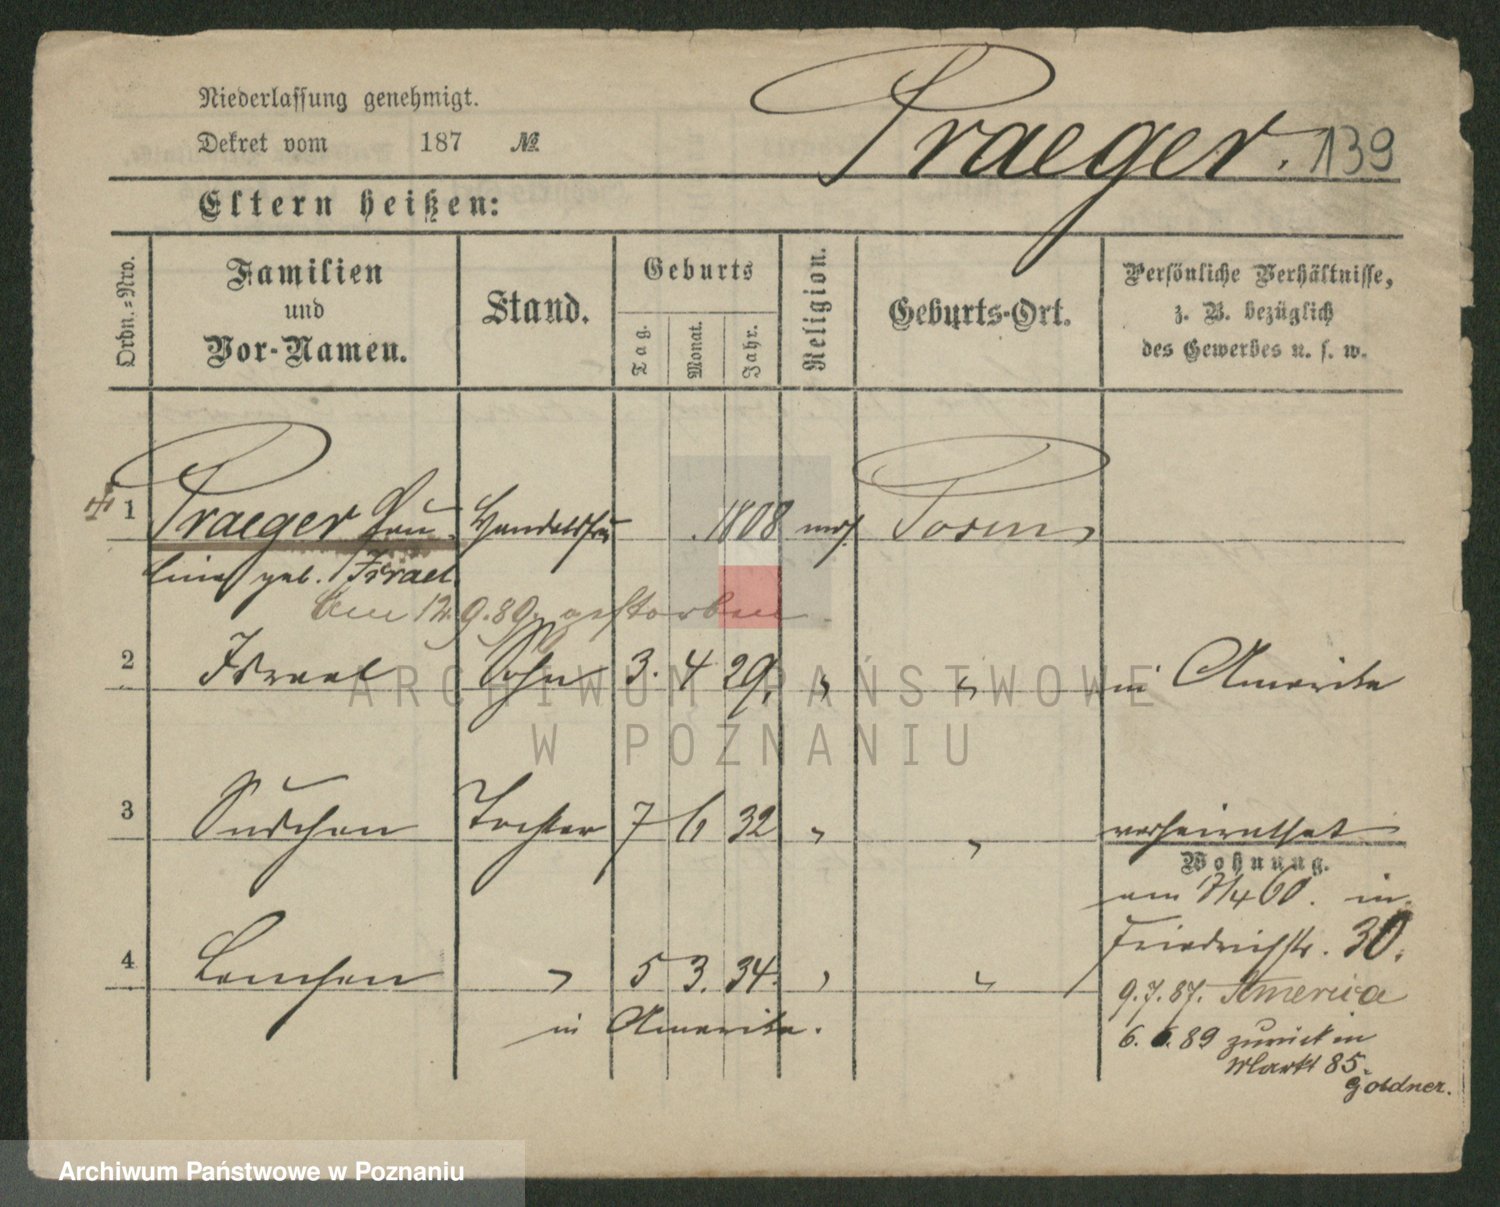 Praeger. 139
Niederlassung genehmigt.
Dekret vom 187 №
Eltern heißen:
Ordn.-Nro.
Familien und Vor-Namen.
Stand.
Geburts
Tag.
Monat.
Jahr.
Religion.
Geburts-Ort.
Persönliche Verhältnisse,
z. B. bezüglich
des Gewerbes u. s. w.
1 Praeger Pau- Handelsfrau 1808 mos. Posen
line geb. Israel
Am 12.9.89. gestorben
2 Israel Sohn 3. 4 29. " " in Amerika
3 Suschen Tochter 7 6 32 " " verheirathet
Wohnung.
am 7/4 60. in
Friedrichstr. 30.
4 Lenchen " 5 3. 34. " "
in Amerika.
9.7.87. America
6. 6. 89 zurück in
Markt 85.
Goldner.
ARCHIWUM PAŃSTWOWE
W POZNANIU
Archiwum Państwowe w Poznaniu